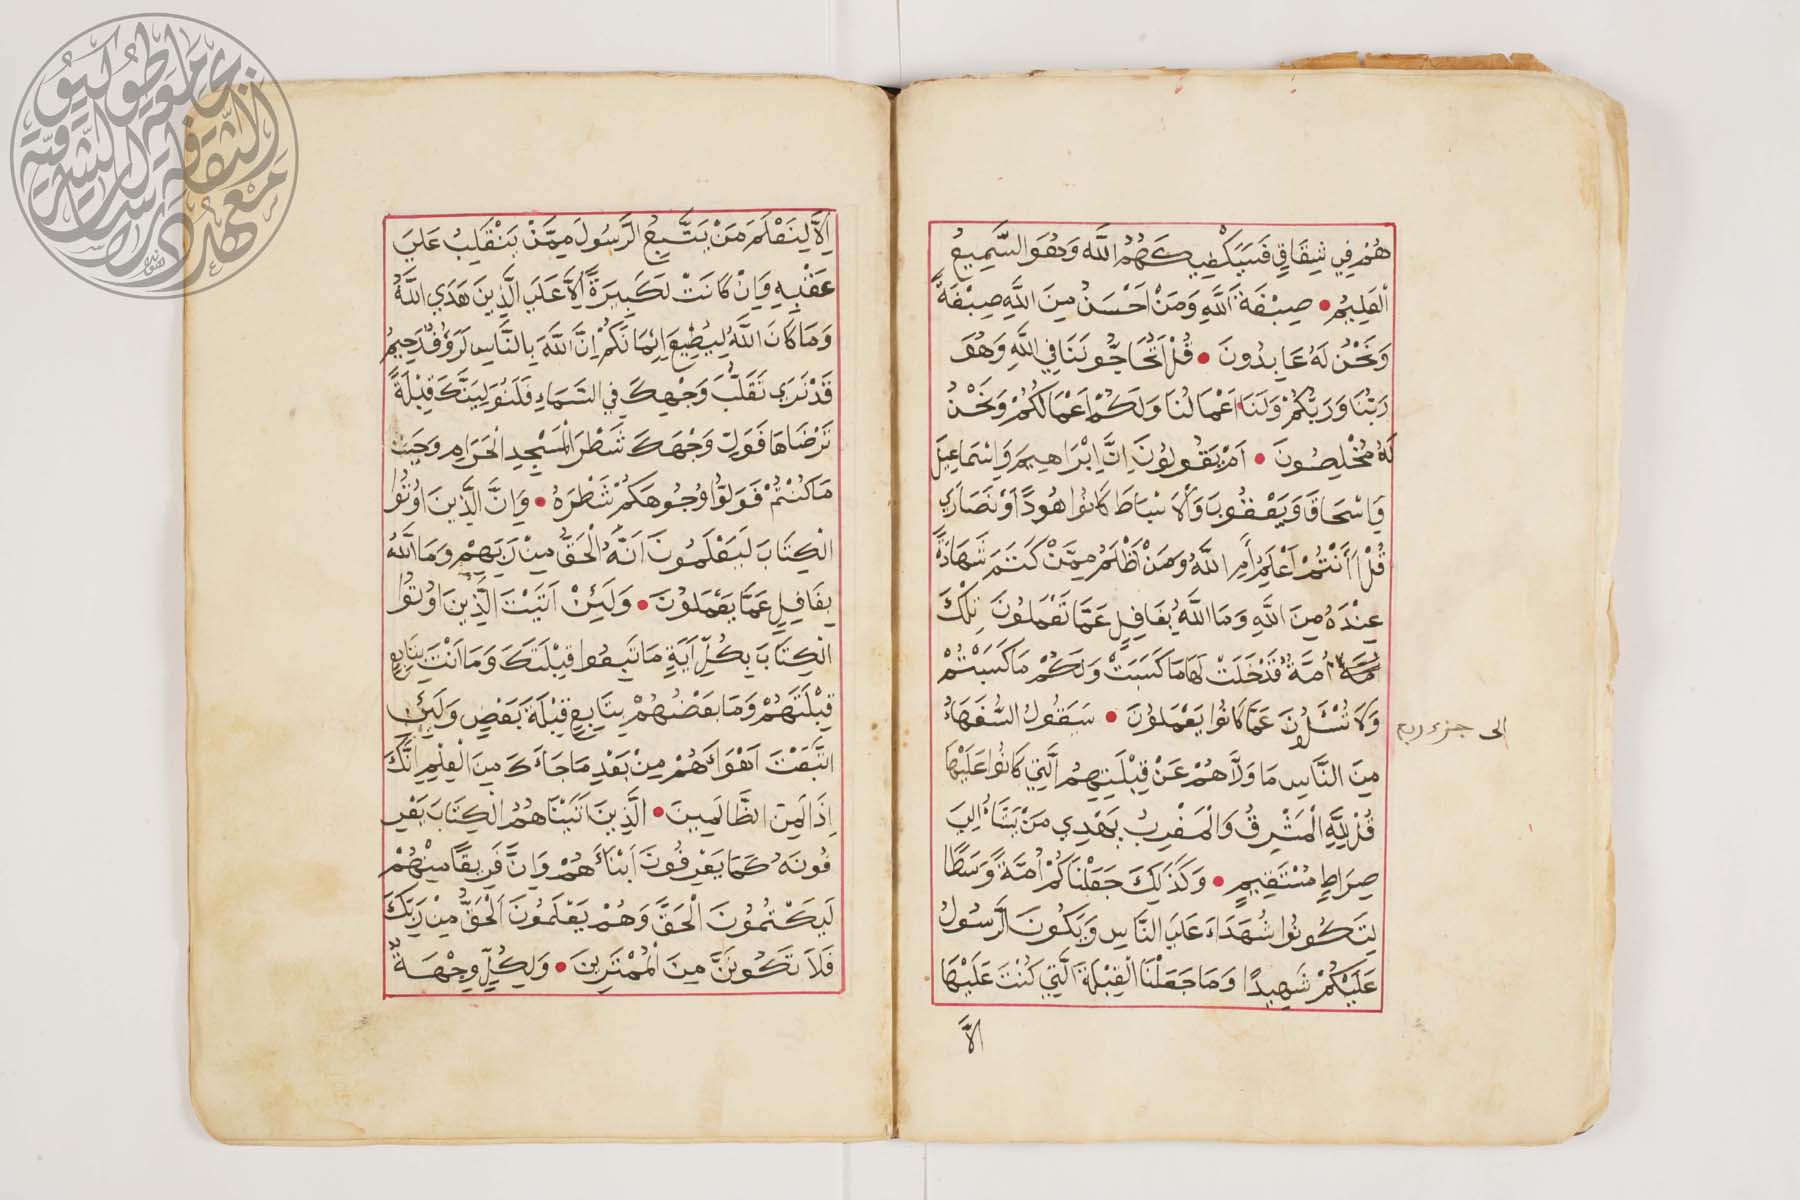 هُمْ فِي شِقَاقٍ فَسَيَكْفِيكَهُمُ اللَّهُ وَهُوَ السَّمِيعُ
الْعَلِيمُ • صِبْغَةَ اللَّهِ وَمَنْ أَحْسَنُ مِنَ اللَّهِ صِبْغَةً
وَنَحْنُ لَهُ عَابِدُونَ • قُلْ أَتُحَاجُّونَنَا فِي اللَّهِ وَهُوَ
رَبُّنَا وَرَبُّكُمْ وَلَنَا أَعْمَالُنَا وَلَكُمْ أَعْمَالُكُمْ وَنَحْنُ
لَهُ مُخْلِصُونَ • اَمْ يَقُولُونَ اِنَّ اِبْرَاهِيمَ وَاِسْمَاعِيلَ
وَاِسْحَاقَ وَيَعْقُوبَ وَالْاَسْبَاطَ كَانُوا هُودًا اَوْ نَصَارَى
قُلْ أَأَنْتُمْ أَعْلَمُ أَمِ اللَّهُ وَمَنْ أَظْلَمُ مِمَّنْ كَتَمَ شَهَادَةً
عِنْدَهُ مِنَ اللَّهِ وَمَا اللَّهُ بِغَافِلٍ عَمَّا تَعْمَلُونَ تِلْكَ
اُمَّةٌ قَدْ خَلَتْ لَهَا مَا كَسَبَتْ وَلَكُمْ مَا كَسَبْتُمْ
وَلَا تُسْئَلُونَ عَمَّا كَانُوا يَعْمَلُونَ • سَيَقُولُ السُّفَهَاءُ
الى جزء ربع
مِنَ النَّاسِ مَا وَلَّاهُمْ عَنْ قِبْلَتِهِمُ الَّتِي كَانُوا عَلَيْهَا
قُلْ لِلَّهِ الْمَشْرِقُ وَالْمَغْرِبُ يَهْدِي مَنْ يَشَاءُ اِلَى
صِرَاطٍ مُسْتَقِيمٍ • وَكَذَلِكَ جَعَلْنَاكُمْ اُمَّةً وَسَطًا
لِتَكُونُوا شُهَدَاءَ عَلَى النَّاسِ وَيَكُونَ الرَّسُولُ
عَلَيْكُمْ شَهِيدًا وَمَا جَعَلْنَا الْقِبْلَةَ الَّتِي كُنْتَ عَلَيْهَا
اِلَّا
اِلَّا لِنَعْلَمَ مَنْ يَتَّبِعُ الرَّسُولَ مِمَّنْ يَنْقَلِبُ عَلَى
عَقْبِهِ وَاِنْ كَانَتْ لَكَبِيرَةً اِلَّا عَلَى الَّذِينَ هَدَى اللَّهُ
وَمَا كَانَ اللَّهُ لِيُضِيعَ اِيمَانَكُمْ اِنَّ اللَّهَ بِالنَّاسِ لَرَؤُفٌ رَحِيمٌ
قَدْ نَرَى تَقَلُّبَ وَجْهِكَ فِي السَّمَاءِ فَلَنُوَلِّيَنَّكَ قِبْلَةً
تَرْضَاهَا فَوَلِّ وَجْهَكَ شَطْرَ الْمَسْجِدِ الْحَرَامِ وَحَيْثُ
مَا كُنْتُمْ فَوَلُّوا وُجُوهَكُمْ شَطْرَهُ • وَاِنَّ الَّذِينَ اُوتُوا
الْكِتَابَ لَيَعْلَمُونَ اَنَّهُ الْحَقُّ مِنْ رَبِّهِمْ وَمَا اللَّهُ
بِغَافِلٍ عَمَّا يَعْمَلُونَ • وَلَئِنْ اَتَيْتَ الَّذِينَ اُوتُوا
الْكِتَابَ بِكُلِّ آيَةٍ مَا تَبِعُوا قِبْلَتَكَ وَمَا اَنْتَ بِتَابِعٍ
قِبْلَتَهُمْ وَمَا بَعْضُهُمْ بِتَابِعٍ قِبْلَةَ بَعْضٍ وَلَئِنِ
اتَّبَعْتَ اَهْوَاءَهُمْ مِنْ بَعْدِ مَا جَاءَكَ مِنَ الْعِلْمِ اِنَّكَ
اِذًا لَمِنَ الظَّالِمِينَ • الَّذِينَ اٰتَيْنَاهُمُ الْكِتَابَ يَعْرِ
فُونَهُ كَمَا يَعْرِفُونَ اَبْنَاءَهُمْ وَاِنَّ فَرِيقًا مِنْهُمْ
لَيَكْتُمُونَ الْحَقَّ وَهُمْ يَعْلَمُونَ اَلْحَقُّ مِنْ رَبِّكَ
فَلَا تَكُونَنَّ مِنَ الْمُمْتَرِينَ • وَلِكُلٍّ وِجْهَةٌ